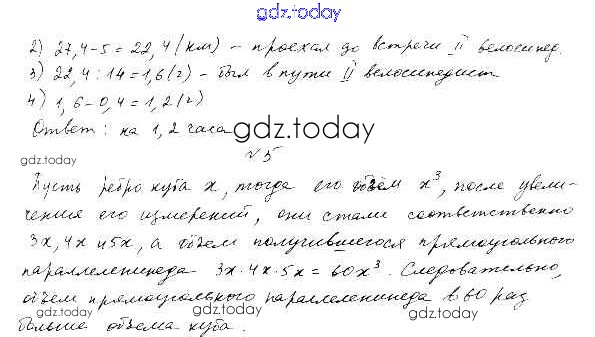 gdz.today
2) 27,4-5=22,4(км) – проехал до встречи II велосипед.
3) 22,4:14=1,6(ч) – был в пути II велосипедист
4) 1,6-0,4=1,2(ч)
Ответ: на 1,2 часа
gdz.today
gdz.today
№5
Пусть ребро куба x, тогда его объём x³, после увели-
чения его измерений, они стали соответственно
3x, 4x и 5x, а объем получившегося прямоугольного
gdz.today
gdz.today
параллелепипеда 3x·4x·5x=60x³. Следовательно,
объем прямоугольного параллелепипеда в 60 раз
больше объема куба.
gdz.today
gdz.today